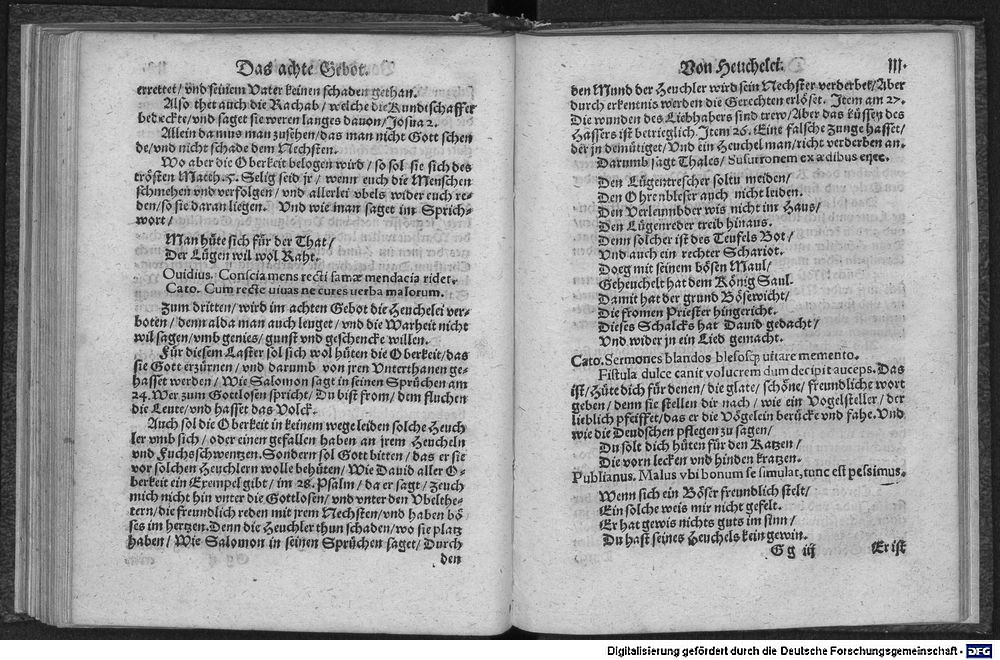 Das achte Gebot.
errettet/ vnd seinem Vater keinen schaden gethan.
Also thet auch die Rachab/ welche die Kundtschaffer
bedeckte/ vnd saget sie weren langes dauon/ Josua 2.
Allein da mus man zusehen/ das man nicht Gott schen
de/ vnd nicht schade dem Nechsten.
Wo aber die Oberkeit belogen wird/ so sol sie sich des
trösten Matth. 5. Selig seid jr/ wenn euch die Menschen
schmehen vnd verfolgen/ vnd allerlei vbels wider euch re-
den/ so sie daran liegen. Vnd wie man saget im Sprich-
wort/
Man hüte sich für der That/
Der Lügen wil wol Raht.
Ouidius. Conscia mens recti famæ mendacia ridet.
Cato. Cum recte uiuas ne cures uerba malorum.
Zum dritten/ wird im achten Gebot die Heuchelei ver-
boten/ denn alda man auch leuget/ vnd die Warheit nicht
wil sagen/ vmb genies/ gunst vnd geschencke willen.
Für diesem Laster sol sich wol hüten die Oberkeit/ das
sie Gott erzürnen/ vnd darumb von jren Vnterthanen ge-
hasset werden/ Wie Salomon sagt in seinen Sprüchen am
24. Wer zum Gottlosen spricht/ Du bist from/ dem fluchen
die Leute/ vnd hasset das Volck.
Auch sol die Oberkeit in keinem wege leiden solche Heuch
ler vmb sich/ oder einen gefallen haben an jrem Heucheln
vnd Fuchsschwentzen. Sondern sol Gott bitten/ das er sie
vor solchen Heuchlern wolle behüten/ Wie Dauid aller O-
berkeit ein Exempel gibt/ im 28. Psalm/ da er sagt/ Zeuch
mich nicht hin vnter die Gottlosen/ vnd vnter den Vbelthe-
tern/ die freundlich reden mit jrem Nechsten/ vnd haben bö
ses im hertzen. Denn die Heuchler thun schaden/ wo sie platz
haben/ Wie Salomon in seinen Sprüchen saget/ Durch
den
Von Heuchelei. 111.
den Mund der Heuchler wird sein Nechster verderbet/ Aber
durch erkentnis werden die Gerechten erlöset. Item am 27.
Die wunden des Liebhabers sind trew/ Aber das küssen des
Hassers ist betrieglich. Item 26. Eine falsche Zunge hasset/
der jn demütiget/ Vnd ein Heuchel man/ richt verderben an.
Darumb sagt Thales/ Susurronem ex ædibus eijce.
Den Lügentrescher soltu meiden/
Den Ohrenbleser auch nicht leiden.
Den Verleumbder wis nicht im Haus/
Den Lügenreder treib hinaus.
Denn solcher ist des Teufels Bot/
Vnd auch ein rechter Schariot.
Doeg mit seinem bösen Maul/
Geheuchelt hat dem König Saul.
Damit hat der grund Bösewicht/
Die fromen Priester hingericht.
Dieses Schalcks hat Dauid gedacht/
Vnd wider jn ein Lied gemacht.
Cato. Sermones blandos blesosq; uitare memento.
Fistula dulce canit volucrem dum decipit auceps. Das
ist/ Hüte dich für denen/ die glate/ schöne/ freundliche wort
geben/ denn sie stellen dir nach/ wie ein Vogelsteller/ der
lieblich pfeiffet/ das er die Vögelein berücke vnd fahe. Vnd
wie die Deudschen pflegen zu sagen/
Du solt dich hüten für den Katzen/
Die vorn lecken vnd hinden kratzen.
Publianus. Malus vbi bonum se simulat, tunc est pessimus.
Wenn sich ein Böser freundlich stelt/
Ein solche weis mir nicht gefelt.
Er hat gewis nichts guts im sinn/
Du hast seines Heuchels kein gewin.
G g iij Er ist
Digitalisierung gefördert durch die Deutsche Forschungsgemeinschaft - DFG